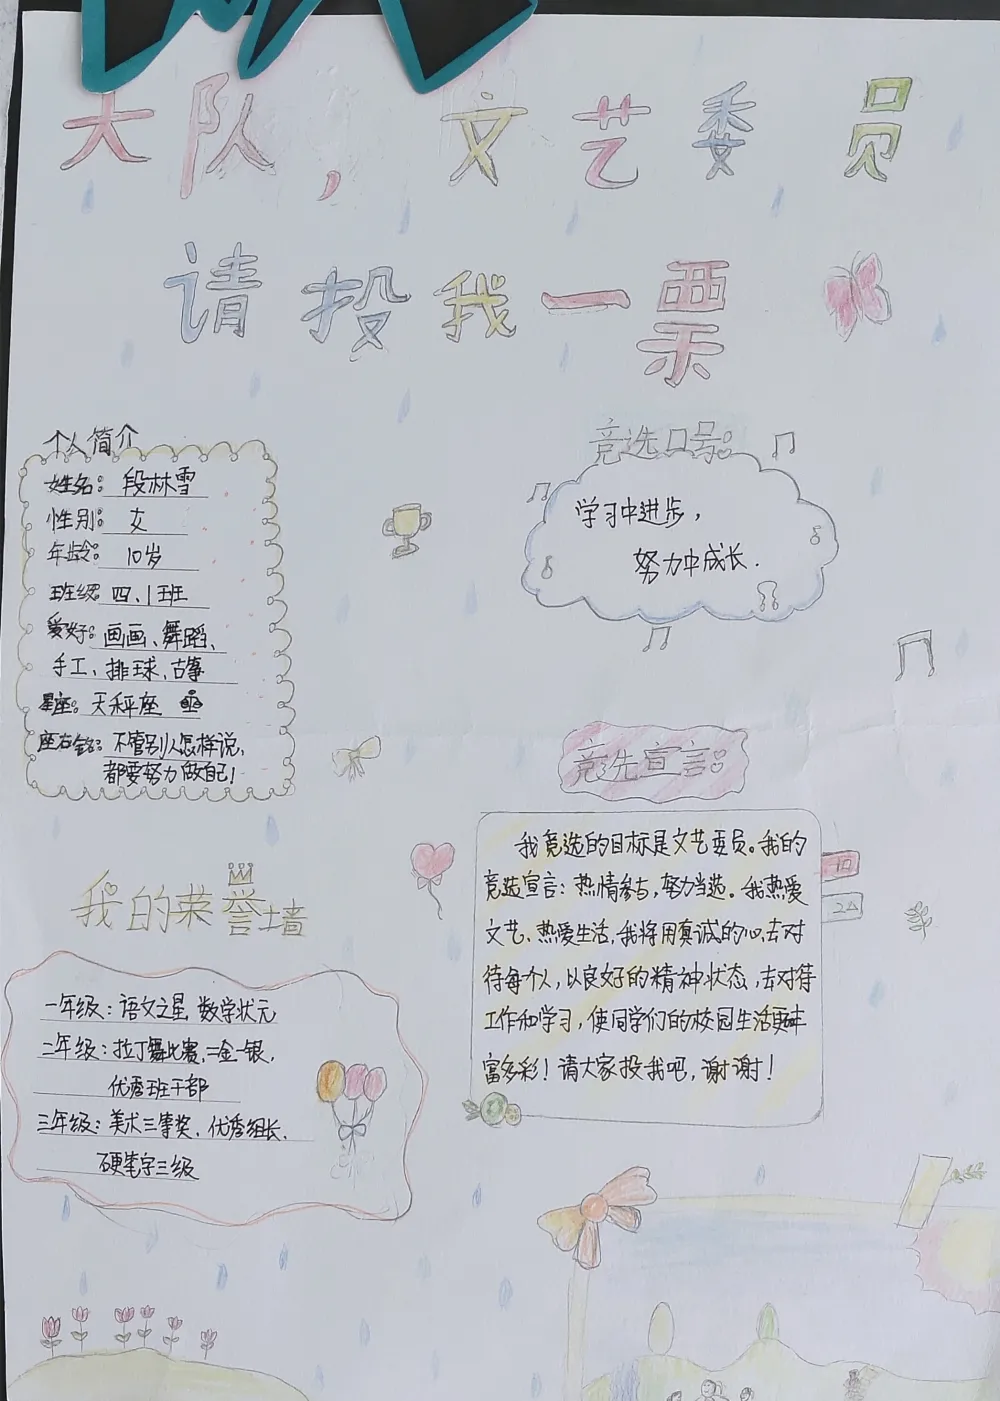 大队，文艺委员
请投我一票
个人简介
姓名：段林雪
性别：女
年龄：10岁
班级：四、1班
爱好：画画、舞蹈、
手工、排球、古筝
星座：天秤座
座右铭：不管别人怎样说，
都要努力做自己！
竞选口号：
学习中进步，
努力中成长.
竞选宣言：
我竞选的目标是文艺委员。我的
竞选宣言：热情参与，努力当选。我热爱
文艺、热爱生活，我将用真诚的心，去对
待每个人，以良好的精神状态，去对待
工作和学习，使同学们的校园生活更
富多彩！请大家投我吧，谢谢！
我的荣誉墙
一年级：语文之星 数学状元
二年级：拉丁舞比赛，二金一银，
优秀班干部
三年级：美术三等奖，优秀组长，
硬笔字三级